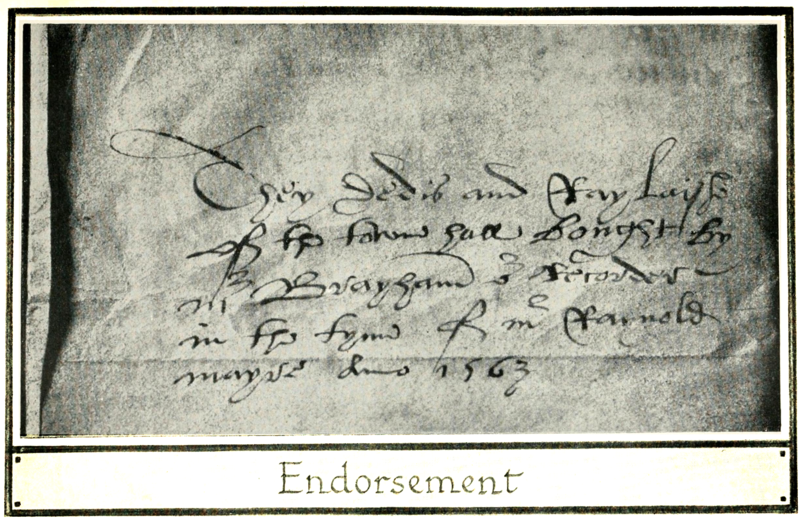 They dedis and Raylaisse
of the towne hall bought by
mr Brayham or Recorder
in the tyme of mr Raynold
mayre Ano 1563
Endorsement